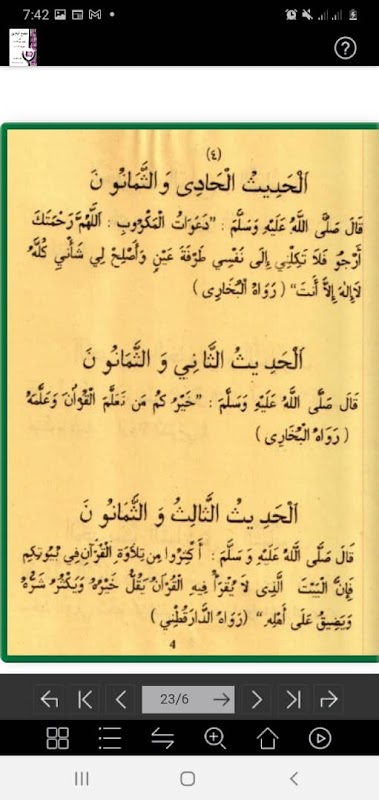 7:42
(٤)
اَلْحَدِيثُ الْحَادِى وَالثَّمَانُونَ
قَالَ صَلَّى اللَّهُ عَلَيْهِ وَسَلَّمَ : "دَعَوَاتُ الْمَكْرُوبِ : اَللَّهُمَّ رَحْمَتَكَ
أَرْجُو فَلَا تَكِلْنِي إِلَى نَفْسِي طَرْفَةَ عَيْنٍ وَأَصْلِحْ لِي شَأْنِي كُلَّهُ
لَاإِلٰهَ إِلاَّ أَنتَ" ( رَوَاهُ اَلْبُخَارِى )
اَلْحَدِيثُ الثَّانِي وَ الثَّمَانُونَ
قَالَ صَلَّى اللَّهُ عَلَيْهِ وَسَلَّمَ : "خَيْرُ كُمْ مَن تَعَلَّمَ الْقُرْاٰنَ وَعَلَّمَهُ
( رَوَاهُ الْبُخَارِى )
اَلْحَدِيثُ الثَّالِثُ وَ الثَّمَانُونَ
قَالَ صَلَّى اللَّهُ عَلَيْهِ وَسَلَّمَ : أَكْثِرُوا مِن تِلَاوَةِ الْقُرْآنِ فِي بُيُوتِكِمْ
فَإِنَّ الْبَيْتَ الَّذِى لَا يُقْرَأُ فِيهِ الْقُرْآنُ يَقُلُّ خَيْرُهُ وَيَكْثُرُ شَرُّهُ
وَيَضِيقُ عَلَى أَهْلِهِ" (رَوَاهُ الدَّارَقُطْنِي )
4
23/6